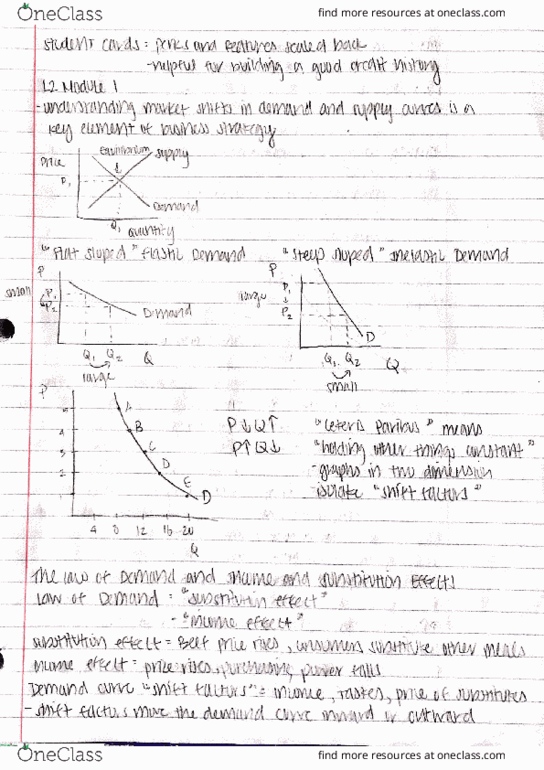 OneClass
find more resources at oneclass.com
student cards = perks and features scaled back
- helpful for building a good credit history
1.2 Module 1
- understanding market shifts in demand and supply curves is a
key element of business strategy
Price
Equilibrium
Supply
P1
Demand
Q1 Quantity
"Flat sloped" Elastic Demand
"steep sloped" Inelastic Demand
P
small
P1
P2
Demand
Q1 Q2 Q
large
P
large
P1
↓
P2
D
Q1 Q2 Q
small
P
A
B
C
D
E
D
5
4
3
2
1
4 8 12 16 20
Q
P↓Q↑
P↑Q↓
"ceteris paribus" means
"holding other things constant"
- graphs in two dimension
- isolate "shift factors"
The law of Demand and Income and substitution Effect!
Law of Demand = "substitution effect"
- "income effect"
substitution effect = Beef price rises, consumers substitute other meats
Income effect = price rises, purchasing power falls
Demand curve "shift factors" = income, tastes, price of substitutes
- shift factors move the demand curve inward or outward
OneClass
find more resources at oneclass.com